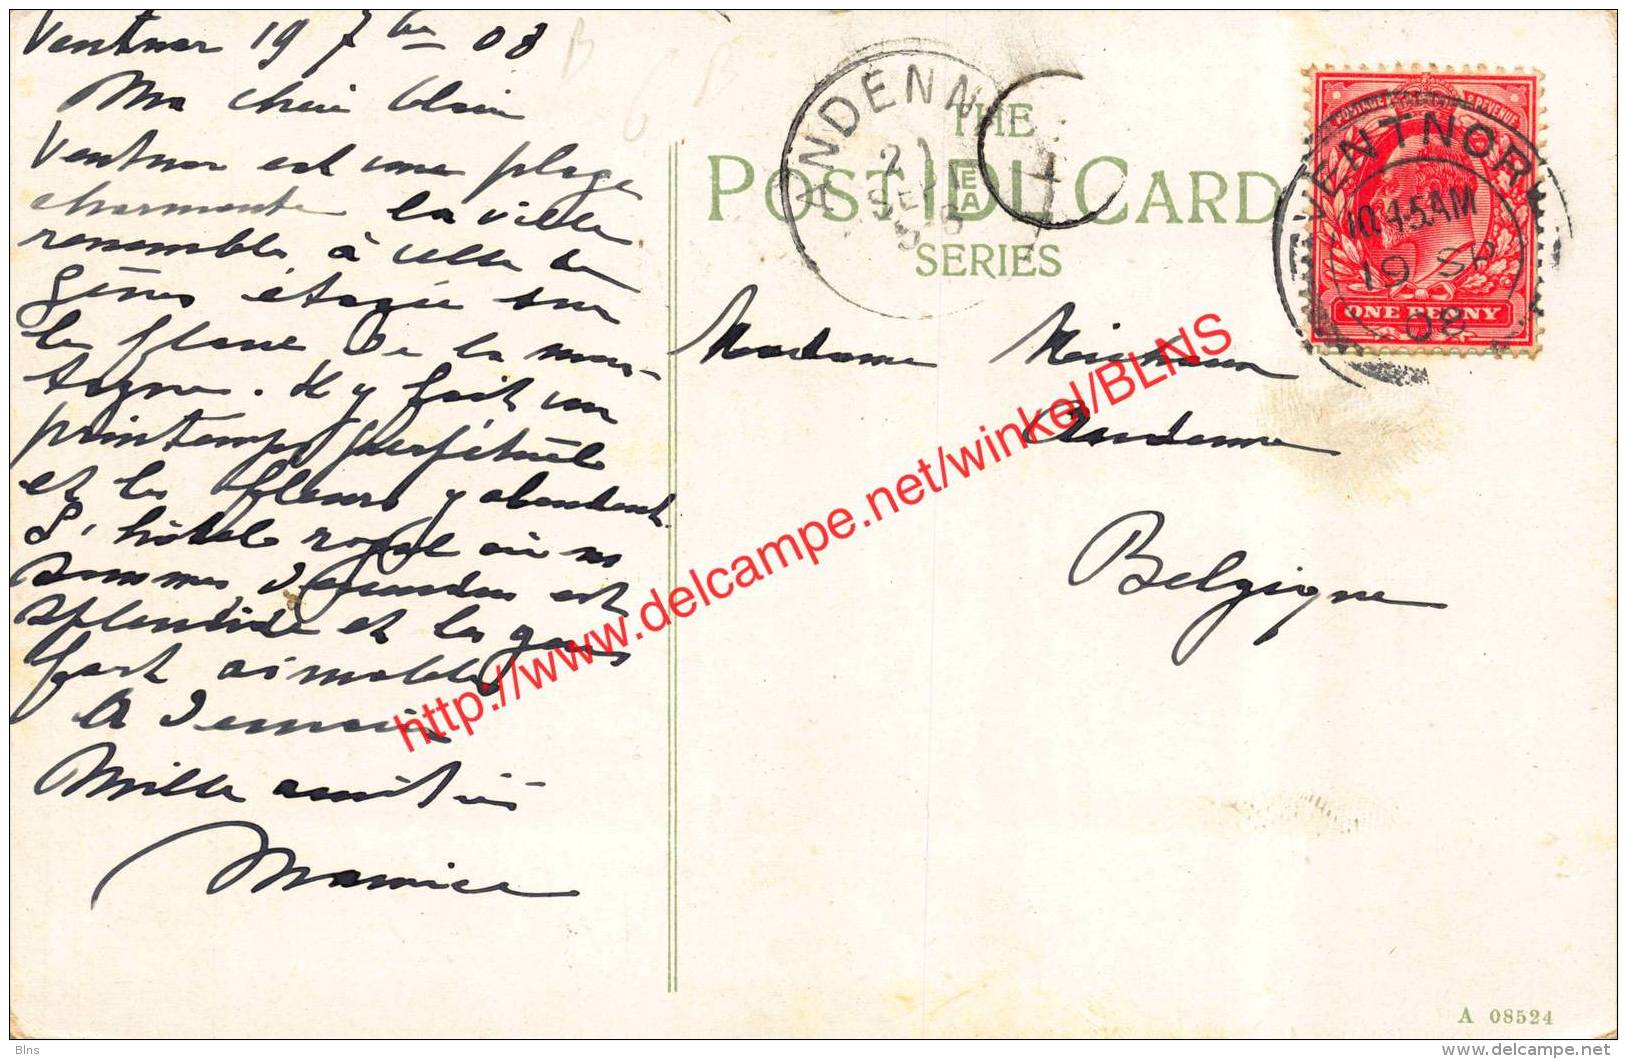 Ventnor 19 7bre 08
Ma chère
Ventnor est une plage
charmante la ville
ressemble à celle de
Gênes étagée sur
le flanc de la mon-
tagne. Il y fait un
printemps perpétuel
et les fleurs y abondent.
L'hôtel royal où ns
sommes descendus est
splendide et les gens
fort aimables
A demain
Mille amitiés
Maurice
THE
POST IDEAL CARD
SERIES
ANDENNE
21
SEPT
Madame
Andenne
Belgique
POSTAGE & REVENUE
ONE PENNY
VENTNOR
10.45AM
19 SP
08
http://www.delcampe.net/winkel/BLNS
A 08524
Blns
www.delcampe.net